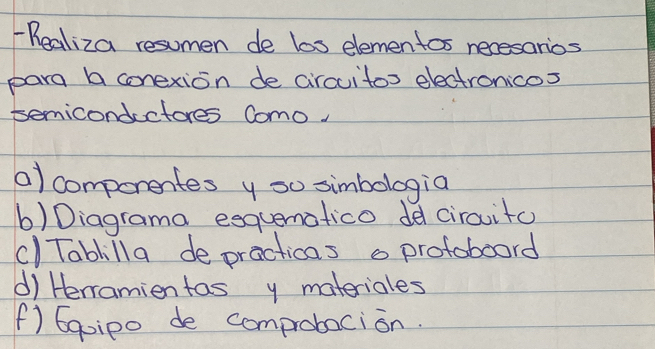 -Realiza resumen de los elementos necesarios
para la conexión de circuitos electronicos
semiconductores como.
a) componentes y su simbologia
b) Diagrama esquematico del circuito
c) Tablilla de prácticas o protoboard
d) Herramientas y materiales
f) Equipo de comprobación.